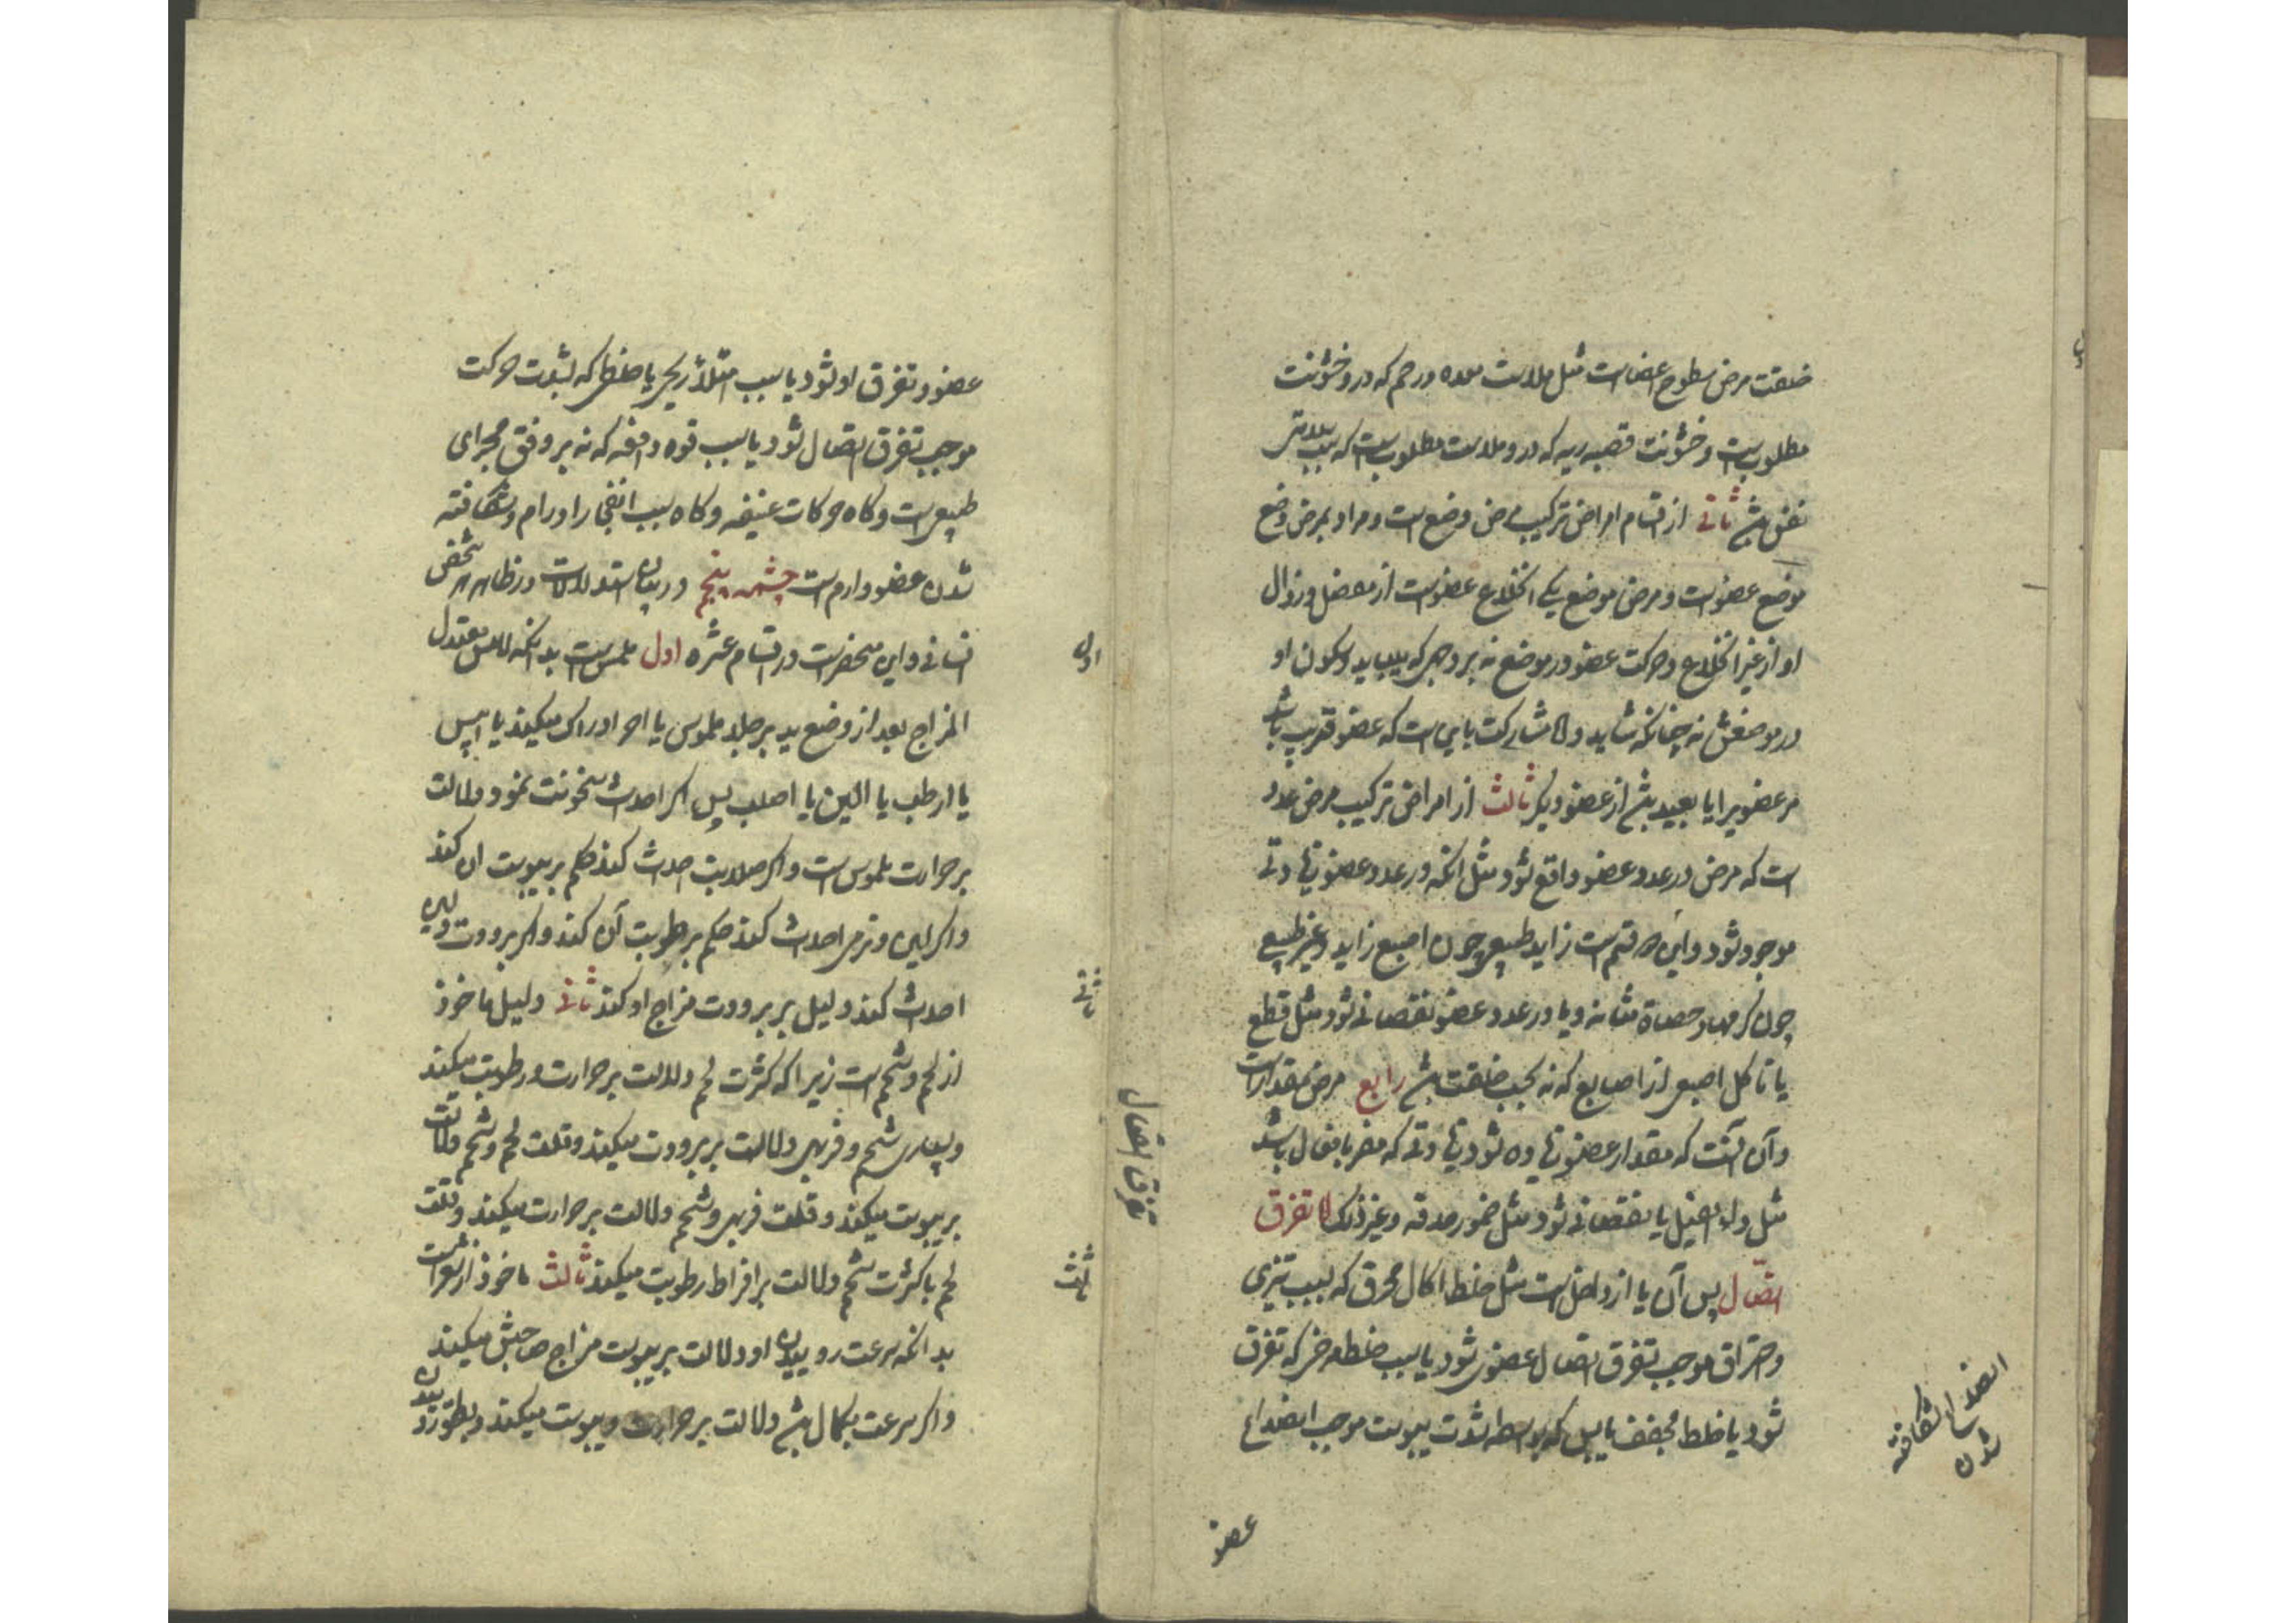 خلقت مرض سطوح اعضاست مثل ملاست معده و رحم که درو خشونت
مطلوبست و خشونت قصبه ریه که درو ملاست مطلوبست که بسبب
نفس باشد ثانی از اقسام امراض ترکیب مرض وضع است و مراد بمرض وضع
موضع عضوست و مرض موضع یکی انخلاع عضوست از مفصل و زوال
او از غیر انخلاع و حرکت عضو در موضع نه بر وجهی که میباید و سکون او
در موضعش نه چنانکه شاید و لا مشارکت باین است که عضو قریب باشد
مر عضویرا یا بعید باشد از عضو دیگر ثالث از امراض ترکیب مرض عدد
است که مرض در عدد عضو واقع شود مثل انکه در عدد عضو زیادتی
موجود شود و این دو قسمست زاید طبیعی چون اصبع زاید و غیر طبیعی
چون کرمها و حصاة مثانه و یا در عدد عضو نقصانی شود مثل قطع
یا تاکل اصبعی از اصابع که نه بحسب خلقت باشد رابع مرض مقدارست
و آن آنست که مقدار عضو زیاده شود زیادتی که مضر بافعال باشد
مثل داء الفیل یا نقصانی شود مثل ضمور حدقه و غیر ذلک اما تفرق
اتصال پس آن یا از داخل است مثل خلط اکال محرق که بسبب تیزی
و احتراق موجب تفرق اتصال عضوی شود یا بسبب خلط که تفرق
شود یا خلط مجفف یابس که بواسطه شدت یبوست موجب انصداع
عضو
انصداع شکافته
شدن
تفرق اتصال
عضو و تفرق او شود یا بسبب امتلاء ریحی یا خلطی که بشدت حرکت
موجب تفرق اتصال شود یا بسبب قوه دافعه که نه بر وفق مجرای
طبیعیست و کاه حرکات عنیفه و کاه بسبب انفجار اورام و شکافته
شدن عضو وارم است چشمه پنجم در بیان استدلالات در ظاهر هر شخص
انسانی و این منحصرست در اقسام عشره اول ملمس است بدانکه لامس معتدل
المزاج بعد از وضع ید بر جلد ملموس یا احر ادراک میکند یا ایبس
یا ارطب یا الین یا اصلب پس اکر احداث سخونت نمود دلالت
بر حرارت ملموس است و اکر صلابت احداث کند حکم بر یبوست ان کند
و اکر لین و نرمی احداث کند حکم برطوبت آن کند و اکر برودت و لین
احداث کند دلیل بر برودت مزاج او کند ثانی دلیل ماخوذ
از لحم و شحم است زیرا که کثرت لحم دلالت بر حرارت و رطوبت میکند
و بسیاری شحم و فربهی دلالت بر برودت میکند و قلت لحم و شحم دلالت
بر یبوست میکند و قلت فربهی و شحم دلالت بر حرارت میکند و قلت
لحم با کثرت شحم دلالت بر افراط رطوبت میکند ثالث ماخوذ از شعرست
بدانکه سرعت روییدن او دلالت بر یبوست مزاج صاحبش میکند
و اکر سرعت بکمال باشد دلالت بر حرارت و یبوست میکند و بطؤ روییدن
اول
ثانی
ثالث